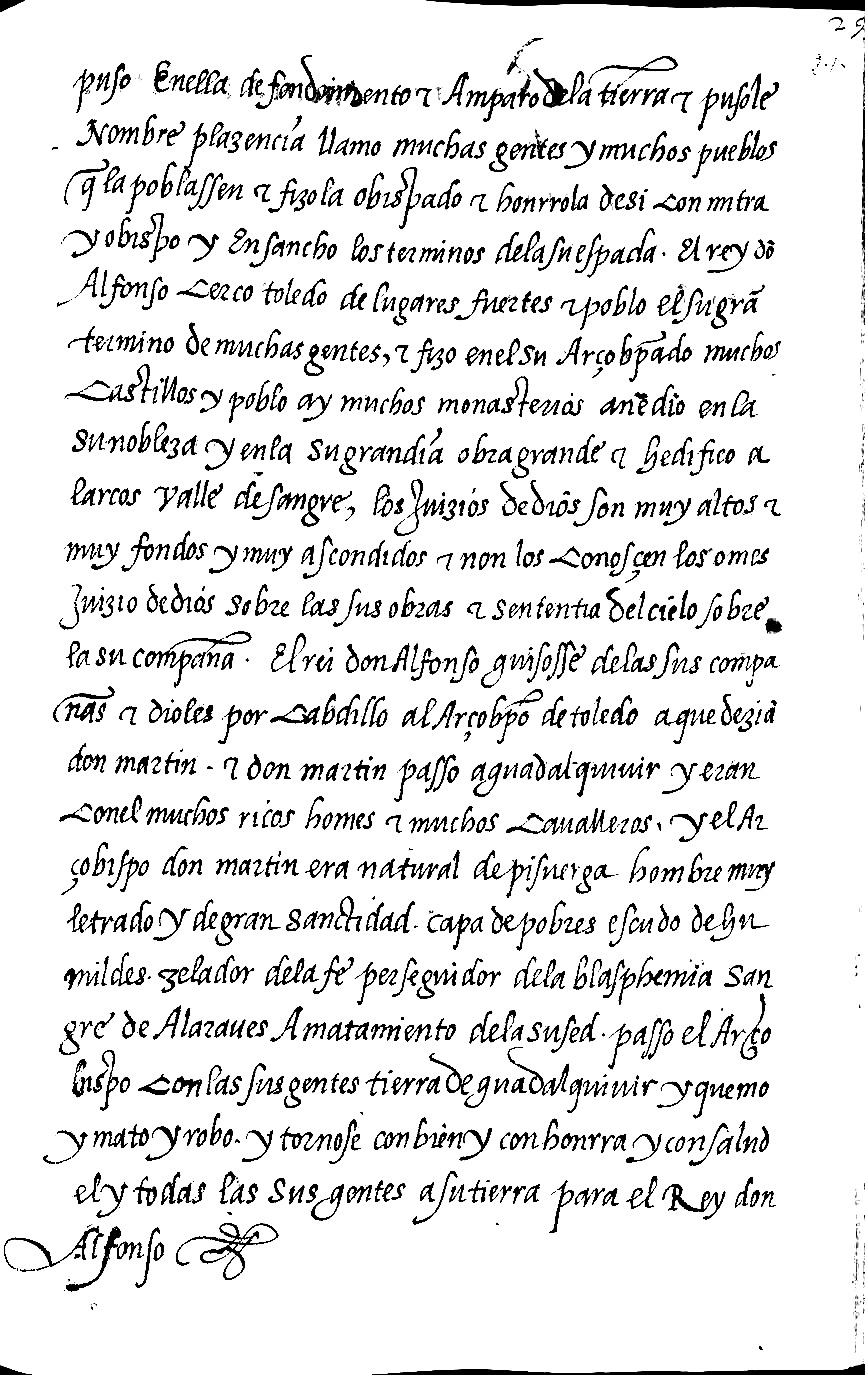 29
puso Enella defendimiento ⁊ Amparo dela tierra ⁊ pusole
Nombre plazencia llamo muchas gentes y muchos pueblos
q̃ la poblassen ⁊ fizola obispado ⁊ honrrola desi con mitra
y obispo y Ensancho los terminos dela su espada. El rey dõ
Alfonso Cerco toledo de lugares fuertes ⁊ poblo el su grã
termino de muchas gentes, ⁊ fizo enel su Arçobpãdo muchos
Castillos y poblo ay muchos monasterios anedio en la
su nobleza y en la su grandia obra grande ⁊ hedifico a
larcos valle de sangre, los Juizios de dios son muy altos ⁊
muy fondos y muy ascondidos ⁊ non los Conosçen los omes
Juizio de dios sobre las sus obras ⁊ sententia del cielo sobre
la su compaña. El rei don Alfonso guisosse delas sus compa
ñas ⁊ dioles por Cabdillo al Arçobpõ de toledo a que dezia
don martin. ⁊ don martin passo a guadalquiuir y eran
Conel muchos ricos homes ⁊ muchos Caualleros, y el Ar
çobispo don martin era natural de pisuerga hombre muy
letrado y de gran sanctidad. capa de pobres escudo de hu
mildes. zelador dela fe perseguidor dela blasphemia san
gre de Alaraues Amatamiento dela su sed. passo el Arço
bispo Con las sus gentes tierra de guadalquiuir y quemo
y mato y robo. y tornose con bien y con honrra y con salud
el y todas las sus gentes a su tierra para el Rey don
Alfonso